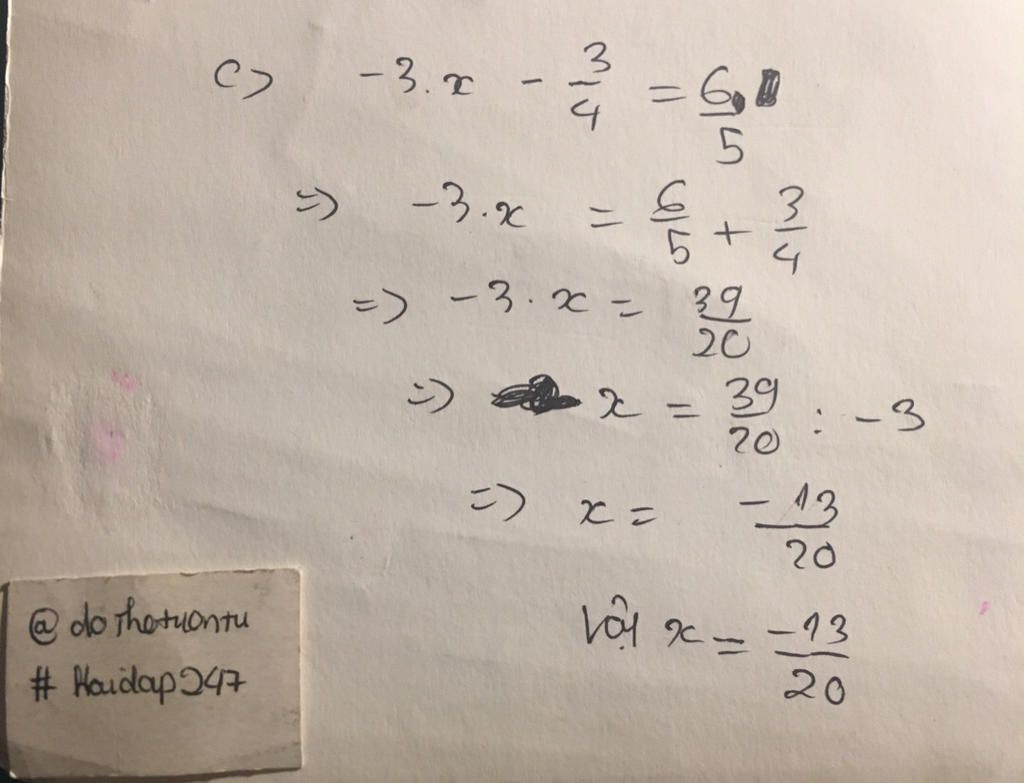 c) -3.x - 3/4 = 6/5
=) -3.x = 6/5 + 3/4
=) -3.x = 39/20
=) x = 39/20 : -3
=) x = -13/20
Vậy x = -13/20
@ dothotuontu
# Hoidap247